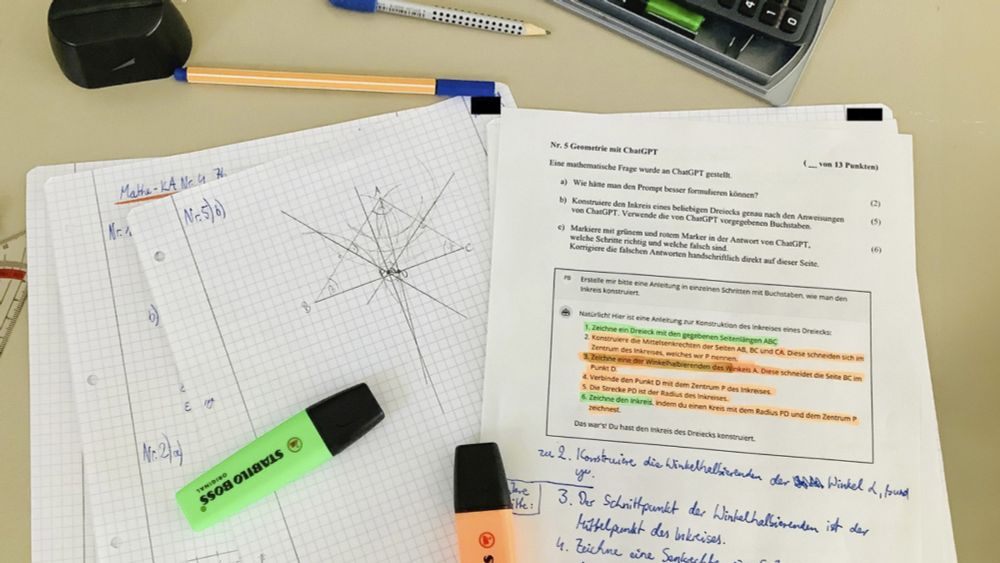 Mathe-KA Nr. 4
Nr. 1
Nr. 5)b)
A
B
C
D
b)
Nr. 2)a)
STABILO BOSS
ORIGINAL
Nr. 5 Geometrie mit ChatGPT
( __ von 13 Punkten)
Eine mathematische Frage wurde an ChatGPT gestellt.
a) Wie hätte man den Prompt besser formulieren können?
(2)
b) Konstruiere den Inkreis eines beliebigen Dreiecks genau nach den Anweisungen
von ChatGPT. Verwende die von ChatGPT vorgegebenen Buchstaben.
(5)
c) Markiere mit grünem und rotem Marker in der Antwort von ChatGPT,
welche Schritte richtig und welche falsch sind.
Korrigiere die falschen Antworten handschriftlich direkt auf dieser Seite.
(6)
Erstelle mir bitte eine Anleitung in einzelnen Schritten mit Buchstaben, wie man den
Inkreis konstruiert.
Natürlich! Hier ist eine Anleitung zur Konstruktion des Inkreises eines Dreiecks:
1. Zeichne ein Dreieck mit den gegebenen Seitenlängen ABC
2. Konstruiere die Mittelsenkrechten der Seiten AB, BC und CA. Diese schneiden sich im
Zentrum des Inkreises, welches wir P nennen.
3. Zeichne eine der Winkelhalbierenden des Winkels A. Diese schneidet die Seite BC im
Punkt D.
4. Verbinde den Punkt D mit dem Zentrum P des Inkreises.
5. Die Strecke PD ist der Radius des Inkreises.
6. Zeichne den Inkreis, indem du einen Kreis mit dem Radius PD und dem Zentrum P
zeichnest.
Das war's! Du hast den Inkreis des Dreiecks konstruiert.
zu 2. Konstruiere die Winkelhalbierenden der Winkel α, β und
γ.
3. Der Schnittpunkt der Winkelhalbierenden ist der
Mittelpunkt des Inkreises.
4. Zeichne eine Senkrechte